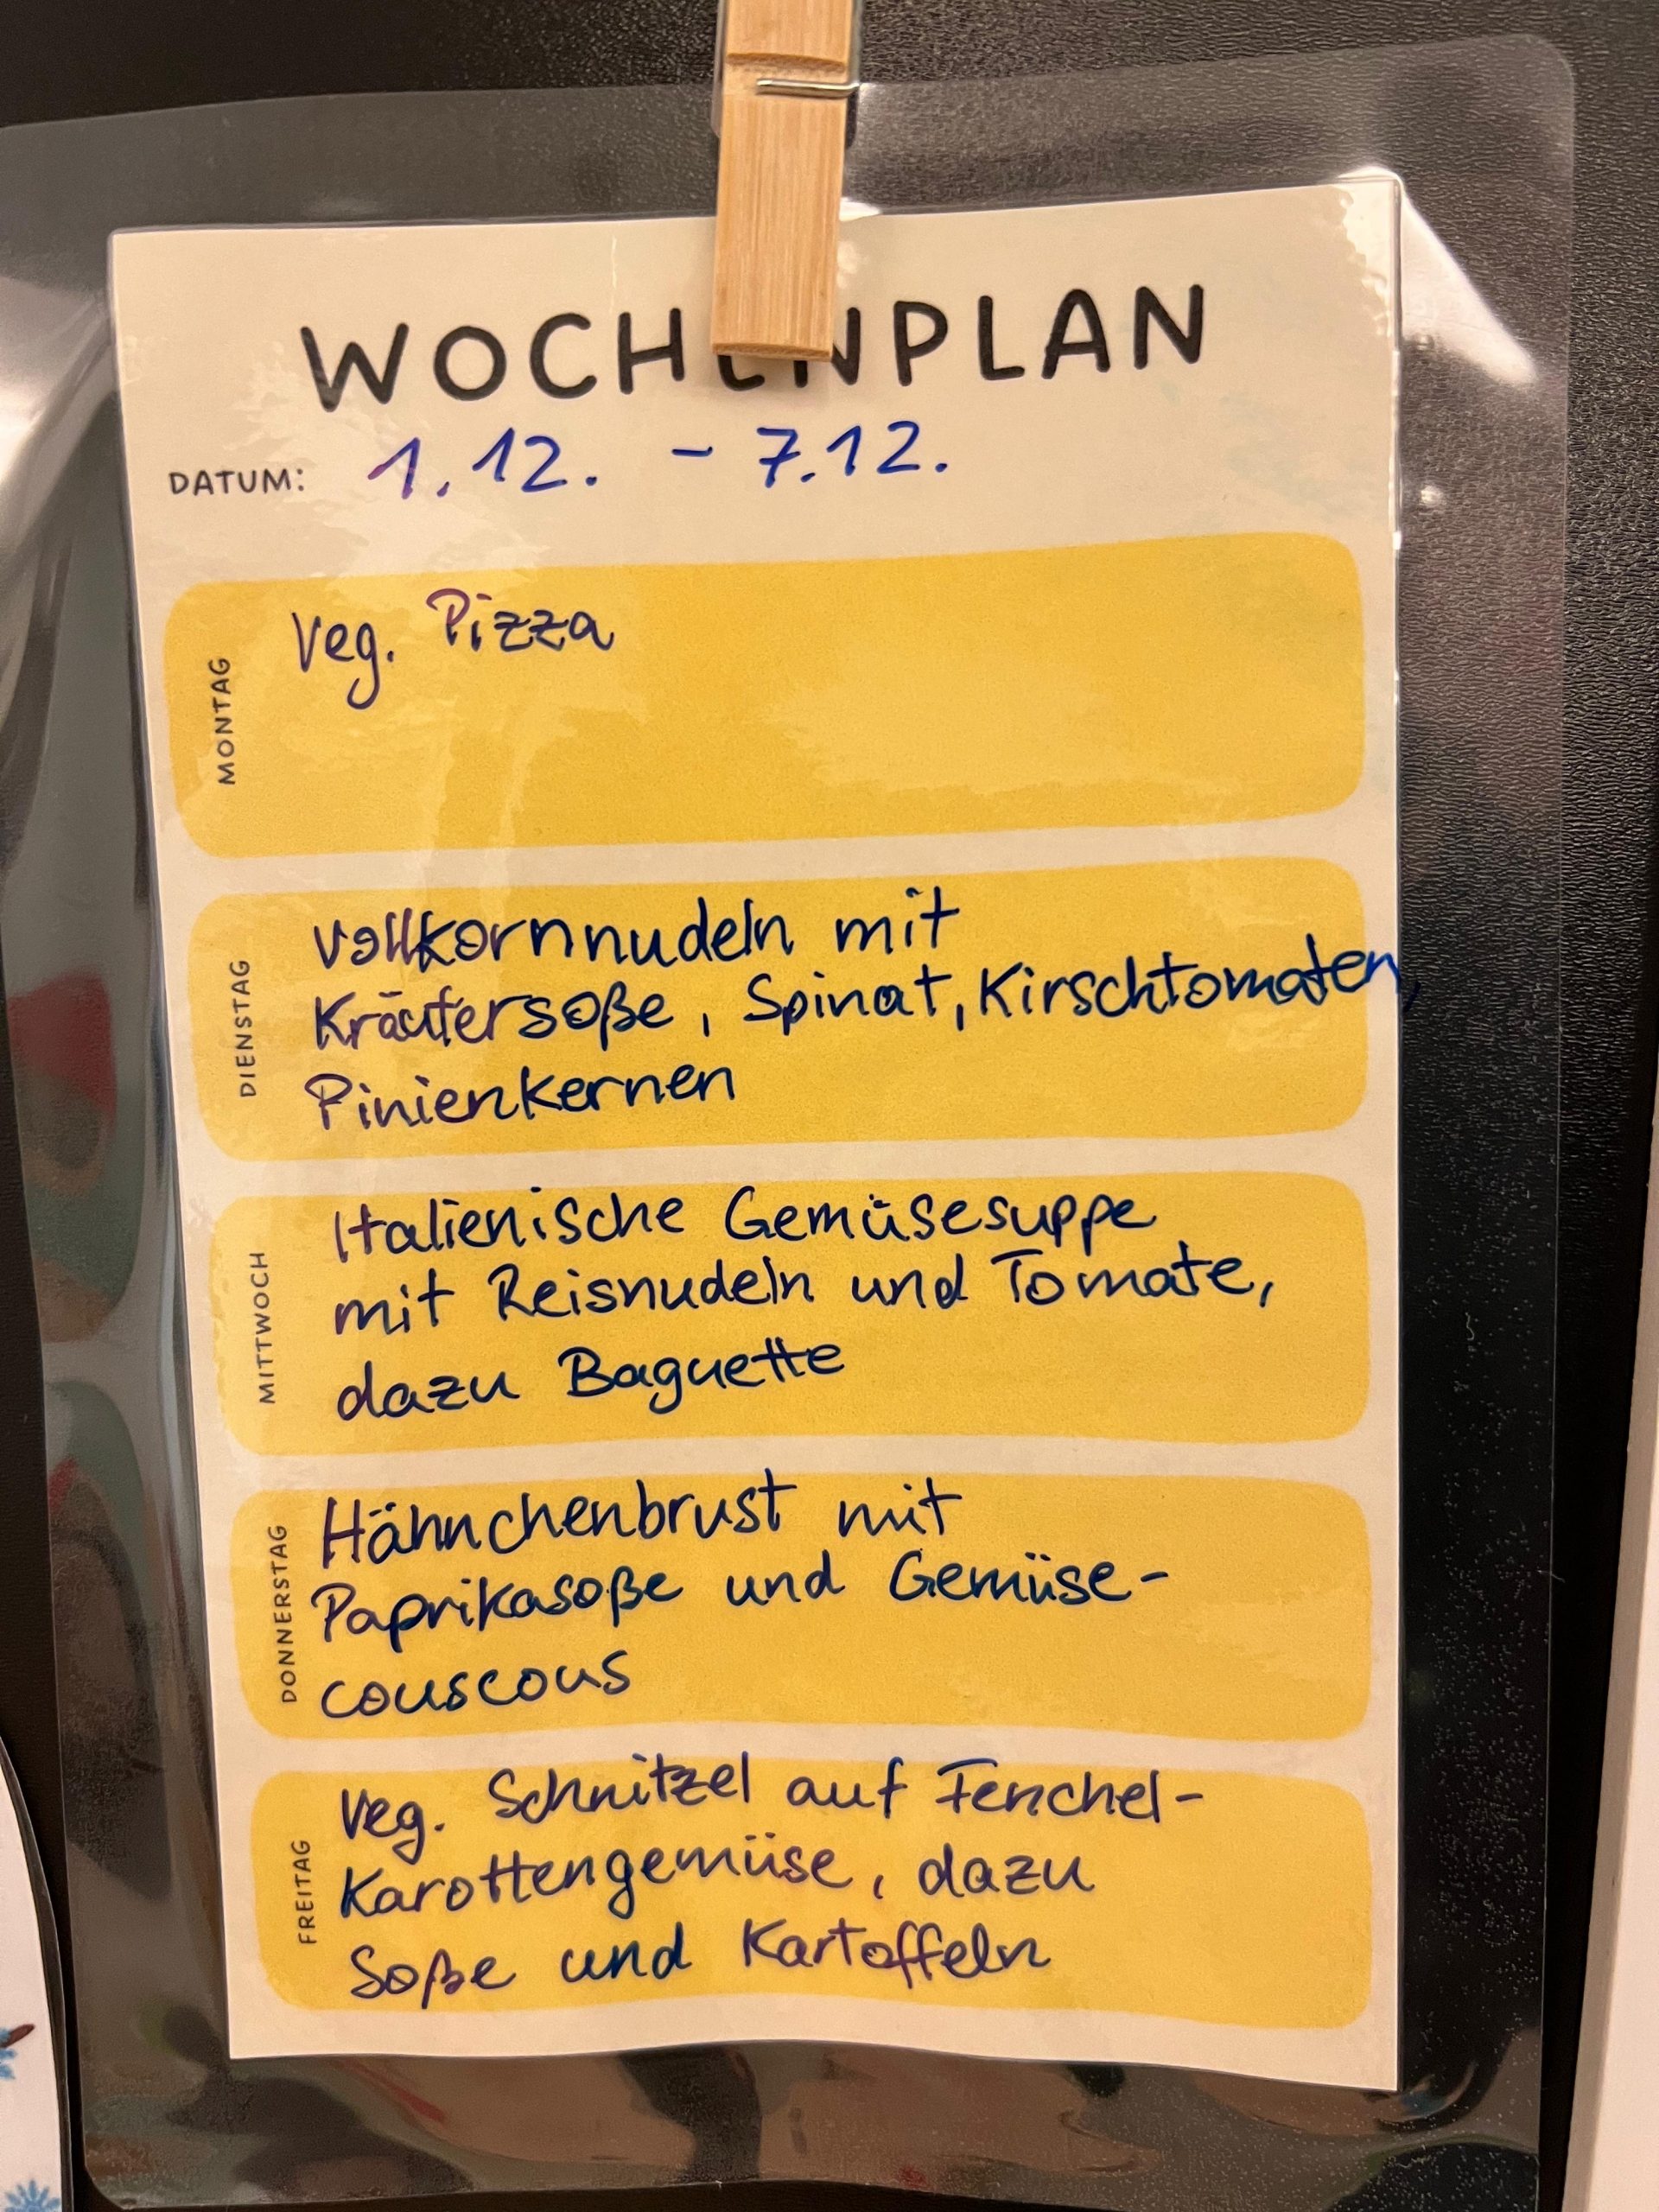 WOCHENPLAN
DATUM: 1.12. - 7.12.
MONTAG
Veg. Pizza
DIENSTAG
Vollkornnudeln mit
Kräutersoße, Spinat, Kirschtomaten,
Pinienkernen
MITTWOCH
Italienische Gemüsesuppe
mit Reisnudeln und Tomate,
dazu Baguette
DONNERSTAG
Hähnchenbrust mit
Paprikasoße und Gemüse-
couscous
FREITAG
Veg. Schnitzel auf Fenchel-
Karottengemüse, dazu
Soße und Kartoffeln